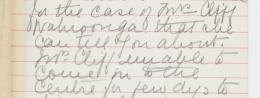 for the case of Mrs Cliff
Nahoonga that she
can tell you about.
Mrs Cliff unable to
come in to the
Centre for few dys to